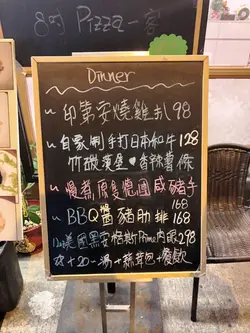 8吋 Pizza 一客
Dinner
印第安燒雞扒 98
自家制手打日本和牛 128
竹碳漢堡 香辣薯條
慢煮原隻德國咸豬手
168
BBQ醬豬肋排 168
美國黑安格斯Prime肉眼 298
+20 一湯+蘇茸包+餐飲